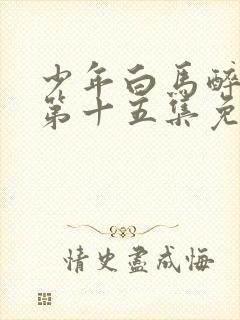 少年白马醉
第十五集免
情史尽成悔